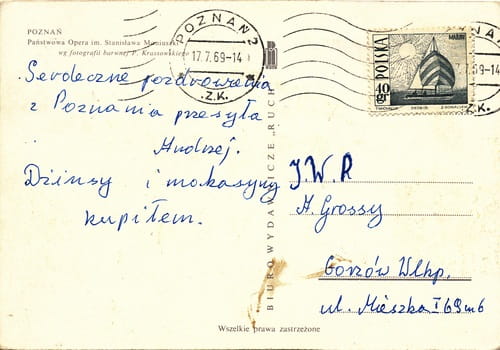 POZNAŃ
Państwowa Opera im. Stanisława Moniuszki
wg fotografii barwnej P. Krassowskiego
POZNAŃ 2
17.7.69-14
Z.K.
POLSKA
40 gr
69-14
Z.K.
Serdeczne pozdrowienia
z Poznania przesyła
Andrzej.
Dżinsy i mokasyny
kupiłem.
BIURO WYDAWNICZE „RUCH"
J.W.P.
A. Grossy
Gorzów Wlkp.
ul. Mieszka I 69 m 6
Wszelkie prawa zastrzeżone